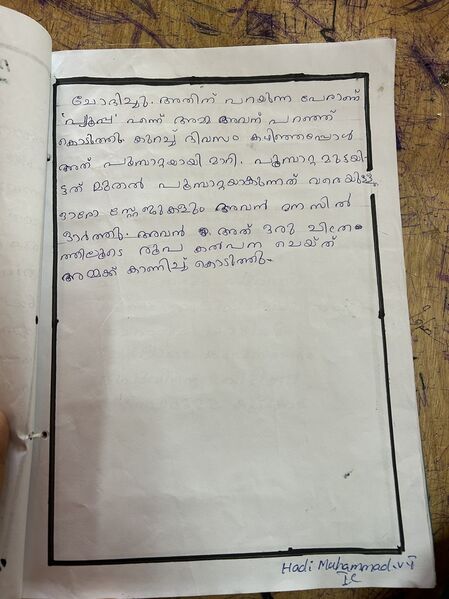 ചോദിച്ചു. അതിന് പറയുന്ന പേരാണ്
'പ്യൂപ്പ' എന്ന് അമ്മ അവന് പറഞ്ഞ്
കൊടുത്തു. കുറച്ച് ദിവസം കഴിഞ്ഞപ്പോൾ
അത് പൂമ്പാറ്റയായി മാറി. പൂമ്പാറ്റ മുട്ടയി-
ട്ടത് മുതൽ പൂമ്പാറ്റയാകുന്നത് വരെയുള്ള
ഓരോ സ്റ്റേജുകളും അവൻ മനസിൽ
ഓർത്തു. അവൻ അത് ഒരു ചിത്ര-
ത്തിലൂടെ രൂപ കൽപന ചെയ്ത്
അമ്മക്ക് കാണിച്ച് കൊടുത്തു.
Hadi Muhammad.v.T